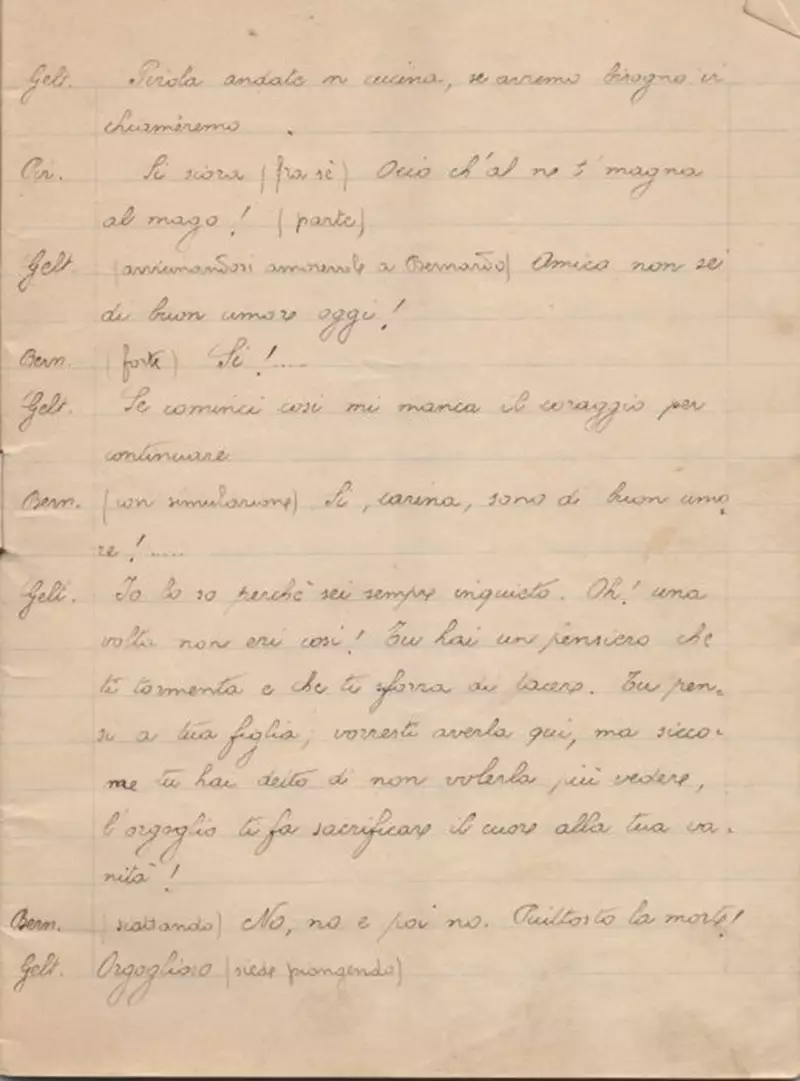 Gelt. Pirola andate in cucina, se avremo bisogno vi
chiameremo.
Pir. Si siora (fra sè) Ocio ch'al no t' magna
al mago! (parte)
Gelt. (avvicinandosi amorevole a Bernardo) Amico non sei
di buon umore oggi!
Bern. (forte) Si!....
Gelt. Se cominci cosi mi manca il coraggio per
continuare
Bern. (con simulazione) Si, carina, sono di buon umo-
re!.....
Gelt. Io lo so perchè sei sempre inquieto. Oh! una
volta non eri cosi! Tu hai un pensiero che
ti tormenta e che ti sforza di tacere. Tu pen-
si a tua figlia, vorresti averla qui, ma sicco-
me tu hai detto di non volerla più vedere,
l'orgoglio ti fa sacrificare il cuore alla tua va-
nità!
Bern. (scattando) No, no e poi no. Piuttosto la morte!
Gelt. Orgoglioso (siede piangendo)